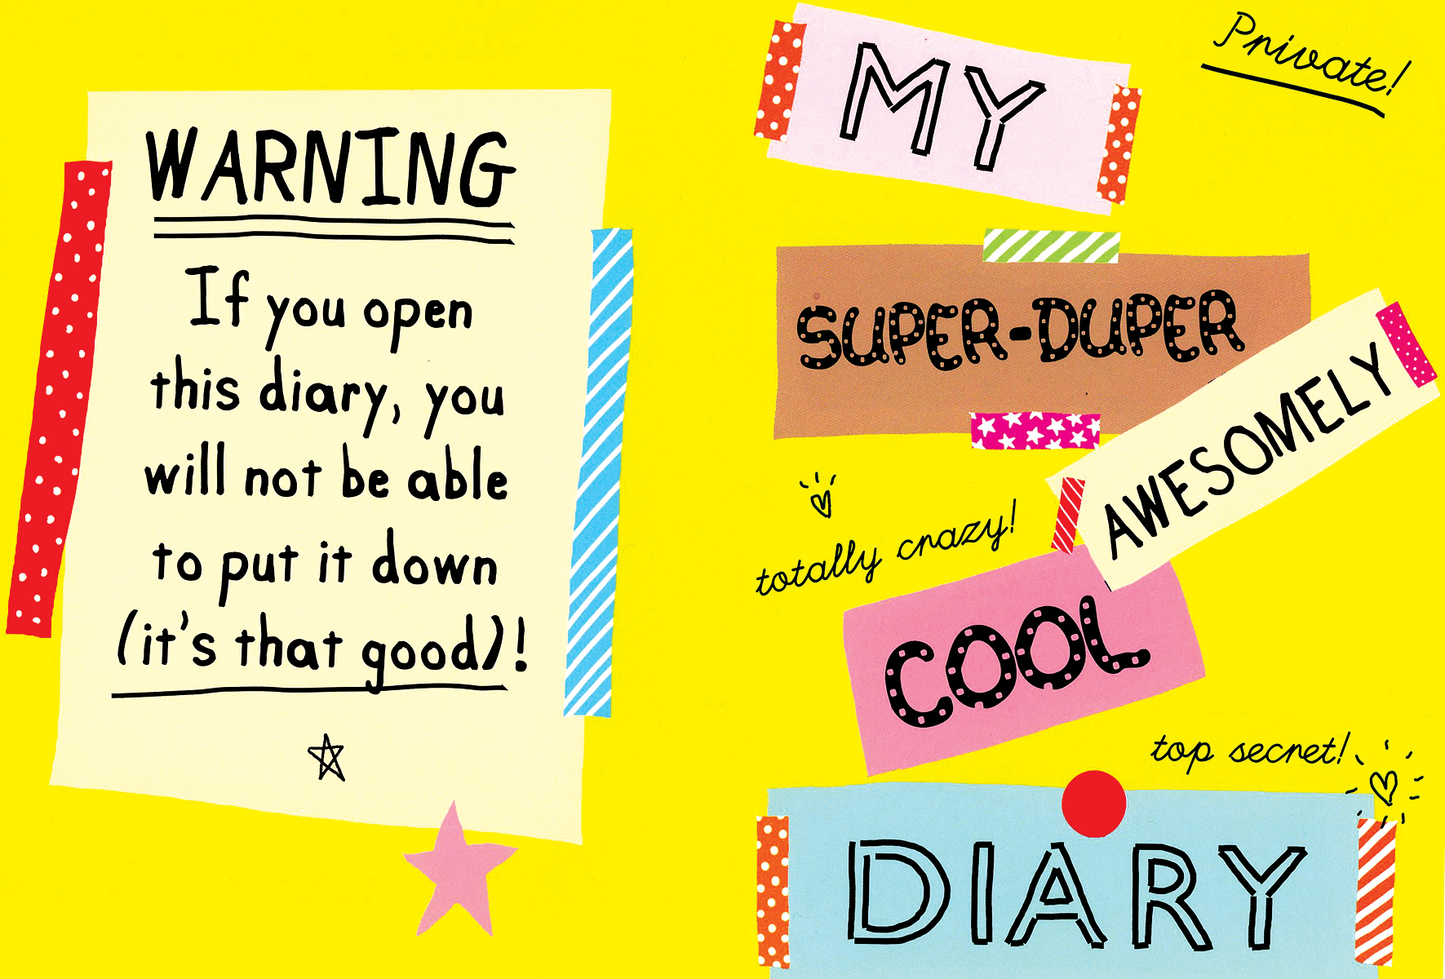 WARNING
If you open
this diary, you
will not be able
to put it down
(it's that good)!
MY
Private!
SUPER-DUPER
AWESOMELY
totally crazy!
COOL
top secret!
DIARY